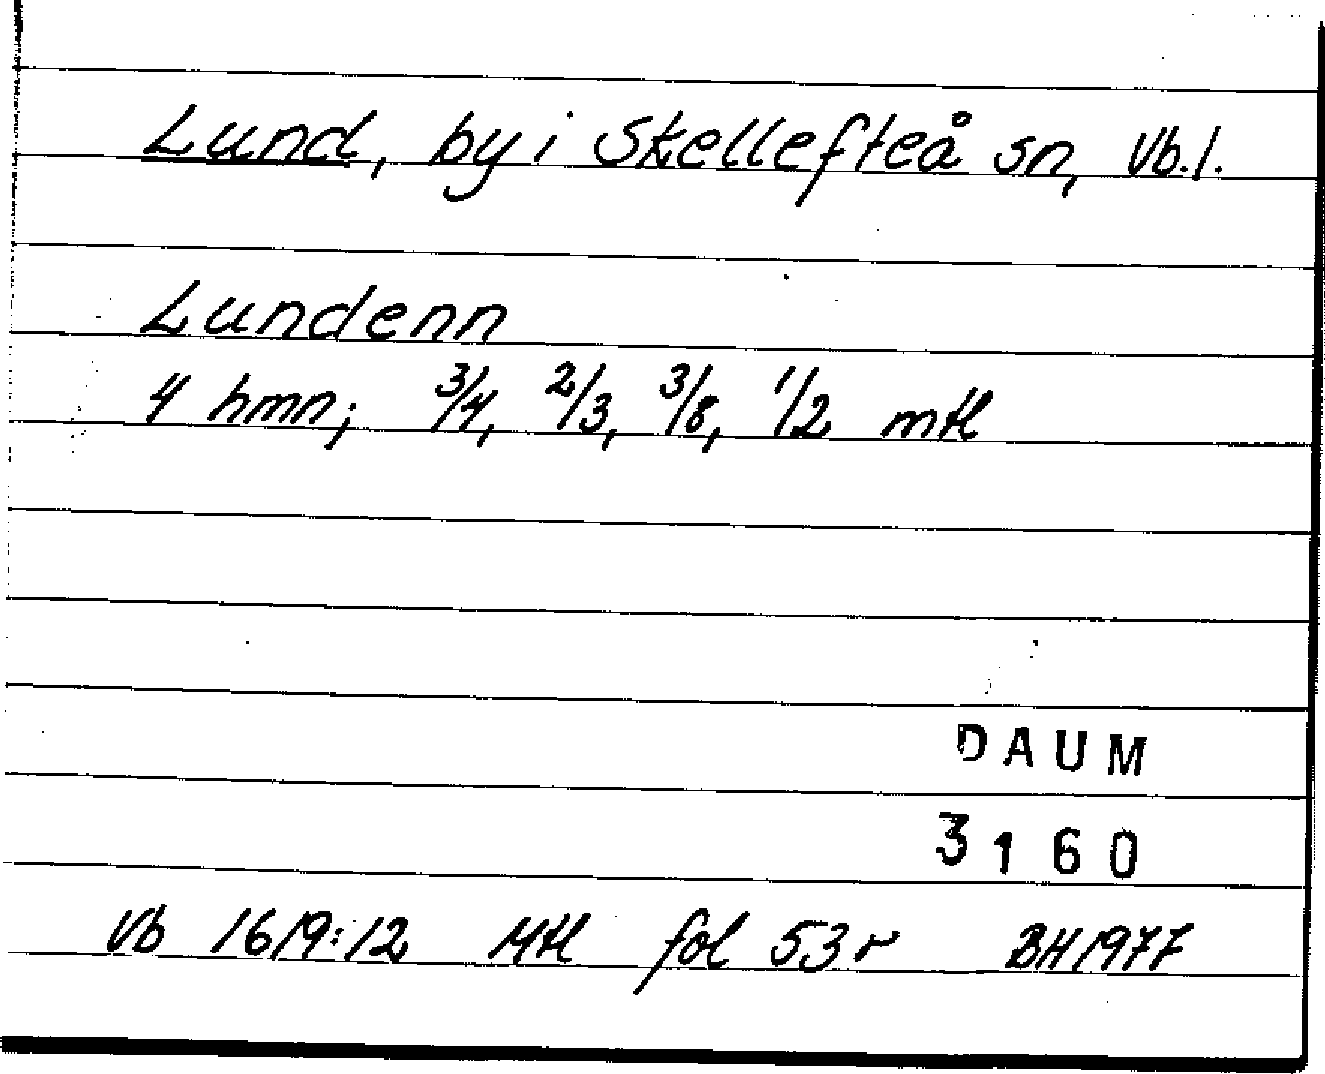 Lund, by i Skellefteå sn, Vb.l.
Lundenn
4 hmn; 3/4, 2/3, 3/8, 1/2 mtl
DAUM
3160
Vb 1619:12 Mtl fol 53r BH1977